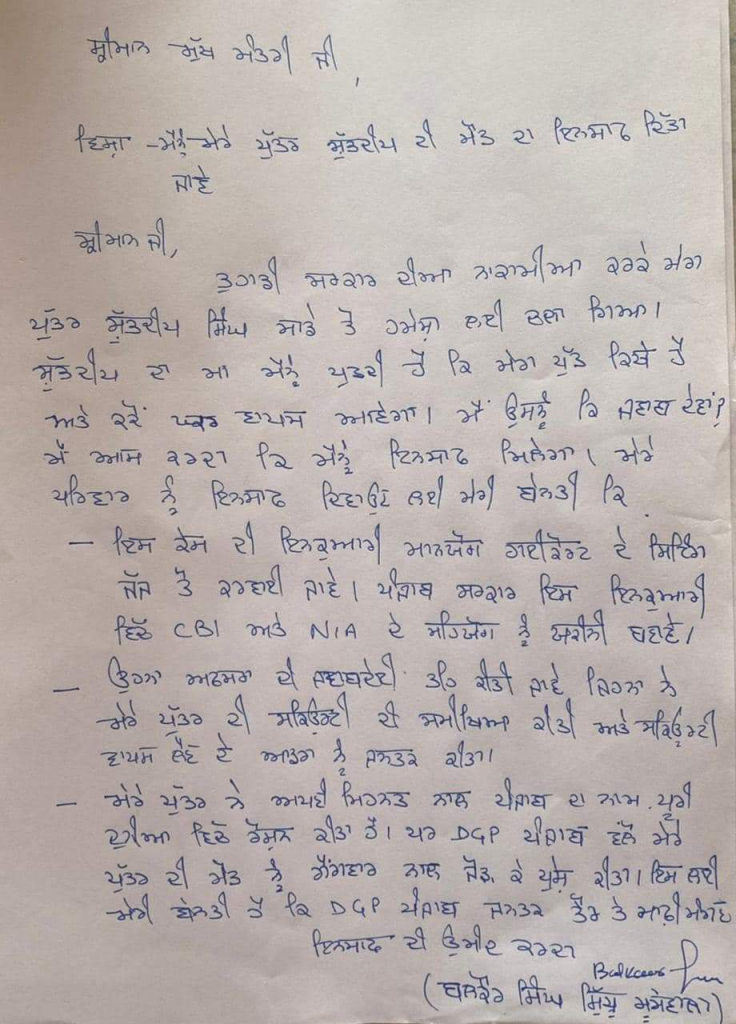 ਸ੍ਰੀਮਾਨ ਮੁੱਖ ਮੰਤਰੀ ਜੀ,
ਵਿਸ਼ਾ - ਮੈਨੂੰ ਮੇਰੇ ਪੁੱਤਰ ਸ਼ੁੱਭਦੀਪ ਦੀ ਮੌਤ ਦਾ ਇਨਸਾਫ ਦਿੱਤਾ
ਜਾਵੇ
ਸ੍ਰੀਮਾਨ ਜੀ,
ਤੁਹਾਡੀ ਸਰਕਾਰ ਦੀਆ ਨਾਕਾਮੀਆ ਕਰਕੇ ਮੇਰਾ
ਪੁੱਤਰ ਸ਼ੁੱਭਦੀਪ ਸਿੰਘ ਸਾਡੇ ਤੋਂ ਹਮੇਸ਼ਾ ਲਈ ਚਲਾ ਗਿਆ।
ਸ਼ੁੱਭਦੀਪ ਦਾ ਮਾ ਮੈਨੂੰ ਪੁਛਦੀ ਹੈ ਕਿ ਮੇਰਾ ਪੁੱਤ ਕਿਥੇ ਹੈ
ਅਤੇ ਕਦੋਂ ਘਰ ਵਾਪਸ ਆਵੇਗਾ। ਮੈਂ ਉਸਨੂੰ ਕਿ ਜਵਾਬ ਦੇਵਾਂ?
ਮੈਂ ਆਸ ਕਰਦਾ ਕਿ ਮੈਨੂੰ ਇਨਸਾਫ ਮਿਲੇਗਾ। ਮੇਰੇ
ਪਰਿਵਾਰ ਨੂੰ ਇਨਸਾਫ ਦਿਵਾਉਣ ਲਈ ਮੇਰੀ ਬੇਨਤੀ ਕਿ
- ਇਸ ਕੇਸ ਦੀ ਇਨਕੁਆਰੀ ਮਾਨਯੋਗ ਹਾਈਕੋਰਟ ਦੇ ਸਿਟਿੰਗ
ਜੱਜ ਤੋਂ ਕਰਵਾਈ ਜਾਵੇ। ਪੰਜਾਬ ਸਰਕਾਰ ਇਸ ਇਨਕੁਆਰੀ
ਵਿੱਚ CBI ਅਤੇ NIA ਦੇ ਸਹਿਯੋਗ ਨੂੰ ਯਕੀਨੀ ਬਣਾਵੇ।
- ਉਹਨਾ ਅਫਸਰਾ ਦੀ ਜਵਾਬਦੇਹੀ ਤਹਿ ਕੀਤੀ ਜਾਵੇ ਜਿਹਨਾ ਨੇ
ਮੇਰੇ ਪੁੱਤਰ ਦੀ ਸਕਿਉਰਟੀ ਦੀ ਸਮੀਖਿਆ ਕੀਤੀ ਅਤੇ ਸਕਿਉਰਟੀ
ਵਾਪਸ ਲੈਣ ਦੇ ਆਡਰਾ ਨੂੰ ਜਨਤਕ ਕੀਤਾ।
- ਮੇਰੇ ਪੁੱਤਰ ਨੇ ਅਪਣੀ ਮਿਹਨਤ ਨਾਲ ਪੰਜਾਬ ਦਾ ਨਾਮ ਪੂਰੀ
ਦੁਨੀਆ ਵਿੱਚ ਰੌਸ਼ਨ ਕੀਤਾ ਹੈ। ਪਰ DGP ਪੰਜਾਬ ਵੱਲੋ ਮੇਰੇ
ਪੁੱਤਰ ਦੀ ਮੌਤ ਨੂੰ ਗੈਂਗਵਾਰ ਨਾਲ ਜੋੜ ਕੇ ਪੇਸ਼ ਕੀਤਾ। ਇਸ ਲਈ
ਮੇਰੀ ਬੇਨਤੀ ਹੈ ਕਿ DGP ਪੰਜਾਬ ਜਨਤਕ ਤੌਰ ਤੇ ਮਾਫ਼ੀ ਮੰਗਣ
ਇਨਸਾਫ ਦੀ ਉਮੀਦ ਕਰਦਾ
Balkaur
(ਬਲਕੌਰ ਸਿੰਘ ਸਿੱਧੂ ਮੂਸੇਵਾਲਾ)